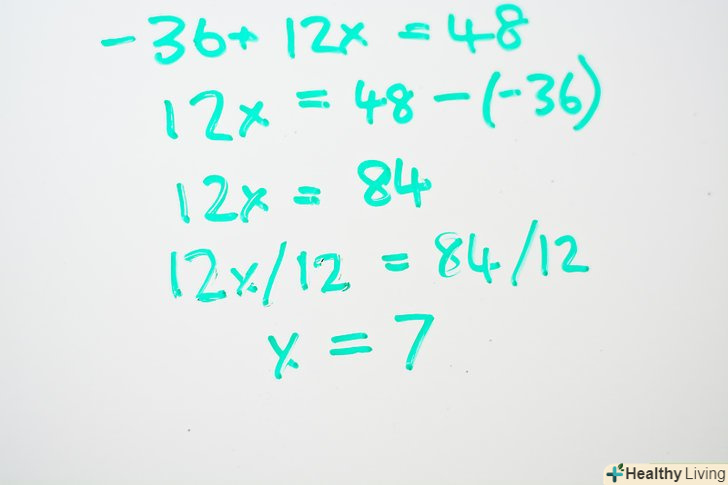 -36+ 12x = 48
12x = 48 - (-36)
12x = 84
12x/12 = 84/12
x = 7
Healthy Living